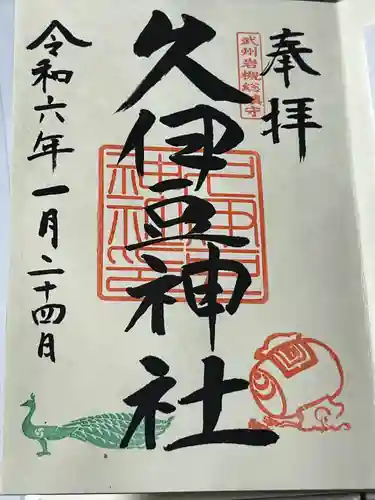 奉拝
武州岩槻総鎮守
久伊豆神社
令和六年一月二十四日